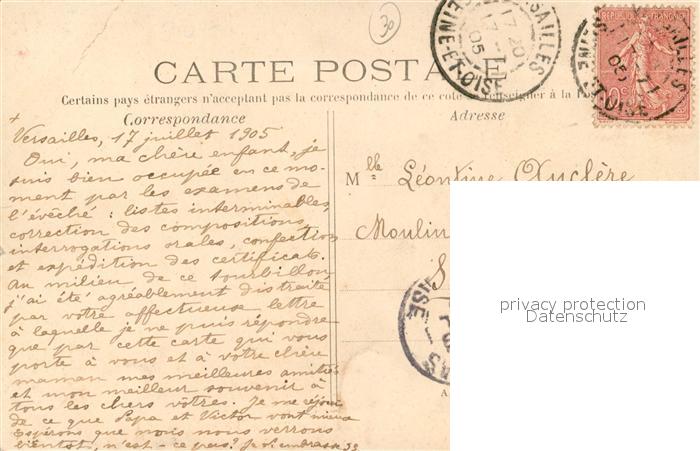 30
CARTE POSTALE
Certains pays étrangers n'acceptant pas la correspondance de ce côté se renseigner à la Poste
Correspondance
Adresse
Versailles, 17 juillet 1905
Oui, ma chère enfant, je
suis bien occupée en ce mo-
ment par les examens de
l'évêché : listes interminables,
correction des compositions,
interrogations orales, confection
et expédition des certificats.
Au milieu de ce tourbillon
j'ai été agréablement distraite
par votre affectueuse lettre
à laquelle je ne puis répondre
que par cette carte qui vous
porte à vous et à votre chère
maman mes meilleures amitiés
et mon meilleur souvenir à
tous les chers vôtres. Je me réjouis
de ce que Papa et Victor vont mieux
Espérons que nous nous verrons
bientôt, n'est-ce pas? Je v. embrasse
Mlle Léontine Auclère
Moulin
S
VERSAILLES
17 20
17 -7
05
SEINE-ET-OISE
REPUBLIQUE FRANÇAISE
10c
privacy protection
Datenschutz